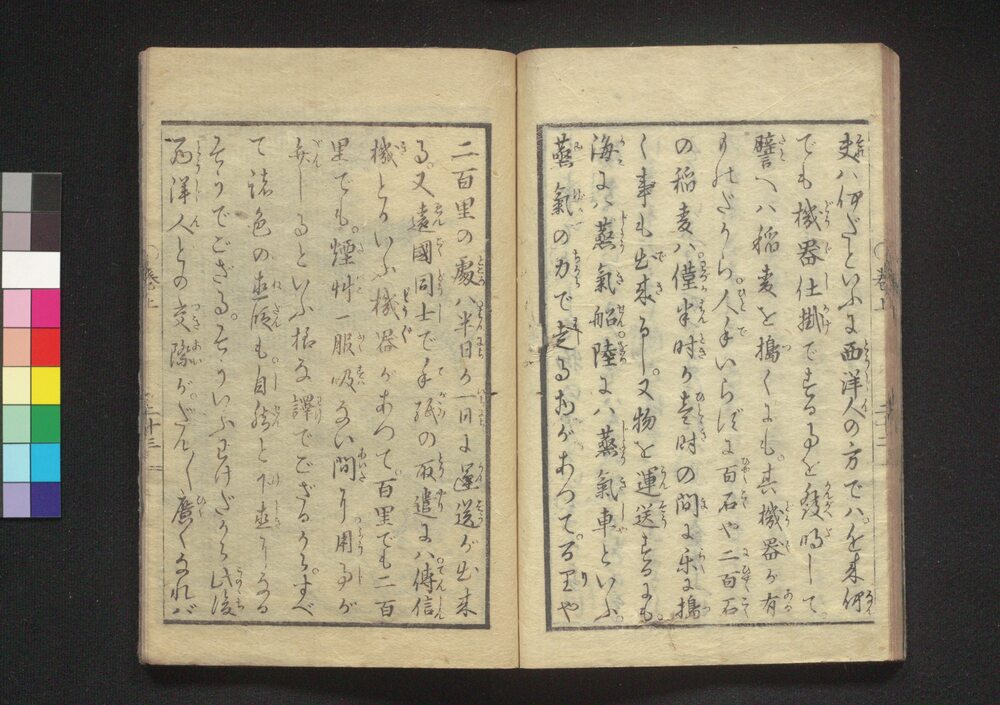 夫ハ何だといふに西洋人の方でハ。近来何
でも機器仕掛でする事を発明して
譬へハ稲麦を搗くにも。其機器が有
ものだから人手いらずに百石や二百石
の稲麦ハ。僅半時か壱時の間に楽に搗
く事も出来るし。又物を運送するにも。
海にハ蒸氣船。陸にハ蒸氣車といふ。
蒸氣の力で走る物があつて。百里や
二百里の處ハ半日か一日に運送が出来
る。又遠國同士で手紙の取遣にハ傳信
機とかいふ機器があつて。百里でも二百
里でも。煙艸一服吸ない間に用事が
弁じるといふ様な譯でござるから。すべ
て諸色の直段も自然と下直になる
そうでござる。そういふわけだから此後
西洋人との交際がだん〳〵廣くなれバ
卷上
卷上